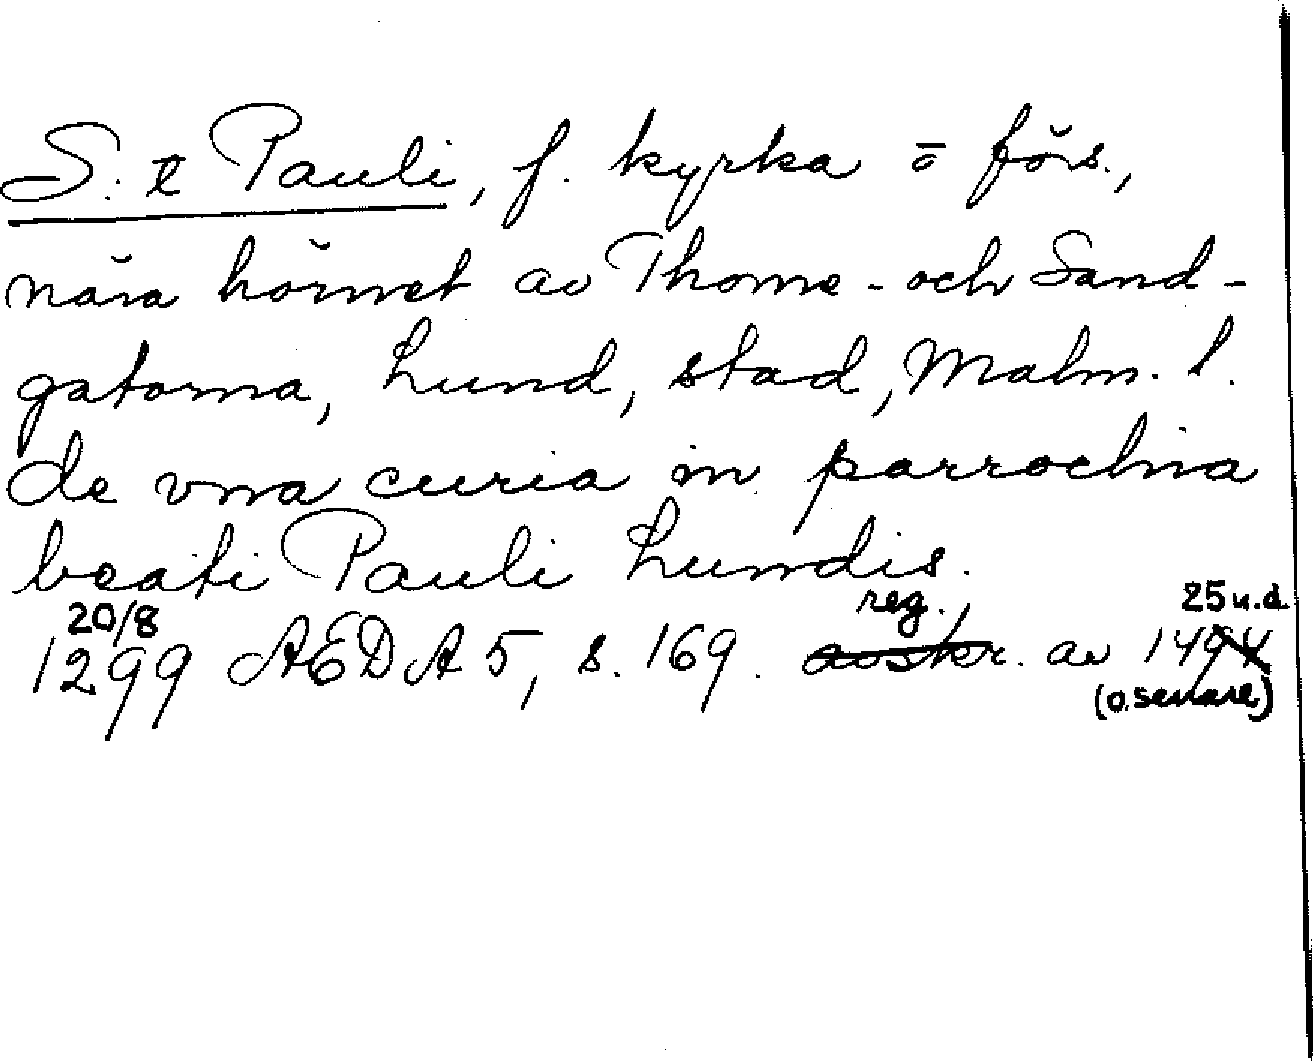 S:t Pauli, f. kyrka o förs.,
nära hörnet av Thome- och Sand-
gatorna, Lund, stad, Malm. l.
de vna curia in parrochia
beati Pauli Lundis.
20/8 reg. 25 u.d.
1299 AEDA 5, s. 169. avskr. av 1494
(o. senare)